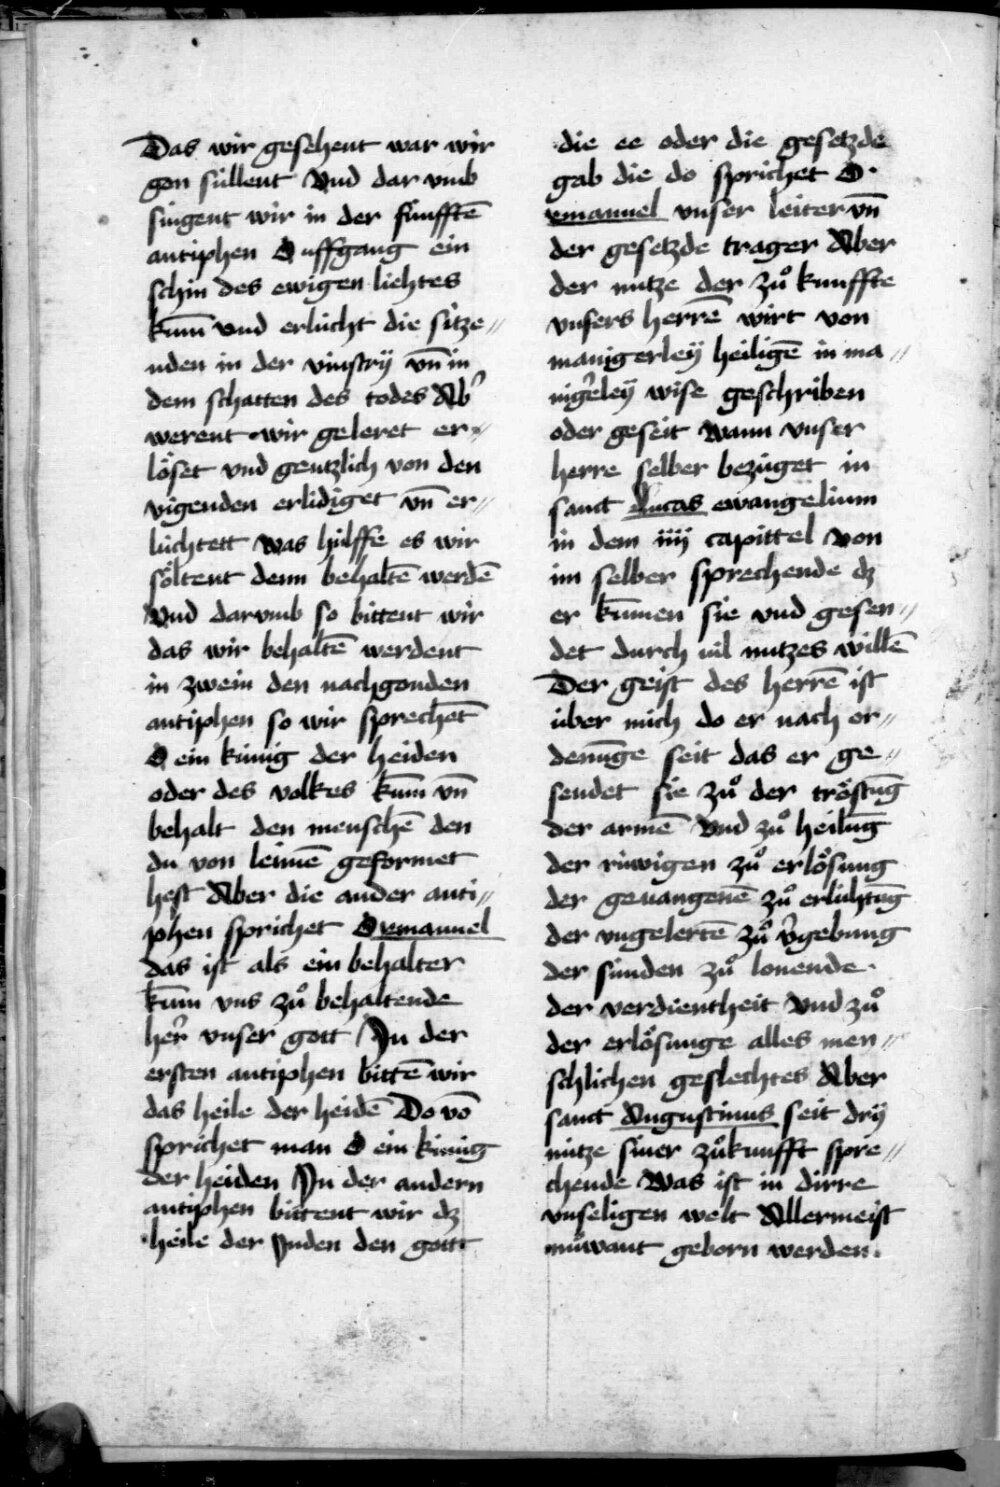 Das wir gesehent war wir
gon süllent Vnd dar vmb
singent wir in der fünfftē
antiphen O uffgang ein
schin des ewigen liehtes
kūm vnd erlücht die sitze〃
nden in der vinstrÿ vn̄ in
dem schatten des todes Ab̛
werent wir geleret er〃
löset vnd gentzlich von den
vigenden erlidiget vn̄ er〃
lüchtett Was hülffe es wir
söltent denn behaltē werdē
Vnd darvmb so bittent wir
das wir behaltē werdent
in zwein den nachgonden
antiphen so wir sprechēt
O ein künig der heiden
oder des volkes kūm vn̄
behalt den menschē den
du von leimē geformet
hest Aber die ander anti〃
phen sprichet O emanuel
das ist als ein behalter
kūm vns zuͦ behaltende
her̛ vnser gott In der
ersten antiphen bittē wir
das heile der heidē Do vō
sprichet man O ein künig
der heiden In der andern
antiphen bittent wir dz
heile der Juden den gott
die ee oder die gesetzde
gab die do sprichet O
emanuel vnser leiter vn̄
der gesetzde trager Aber
der nutze der zuͦ kunffte
vnsers herrē wirt von
manigerleÿ heiligē in ma〃
nig̛eleÿ wise geschriben
oder geseit Wann vnser
herre selber bezüget in
sanct Lucas ewangelium
in dem iiij capittel Von
im selber sprechende dz
er kūmen sie vnd gesen〃
det durch vil nutzes willē
Der geist des herrē ist
über mich do er nach or〃
denūge seit das er ge〃
sendet sie zuͦ der tröstūg
der armē Vnd zuͦ heilūg
der rüwigen zuͦ erlösung
der geuangenē zuͦ erlühtūg
der vngelertē zuͦ v̛gebung
der sünden zuͦ lonende
der verdientheit Vnd zuͦ
der erlösunge alles men〃
schlichen geslechtes Aber
sanct Augustinus seit drÿ
nütze siner zuͦkunfft spre〃
chende Was ist in dirre
vnseligen welt Allermeist
mūwant geborn werden.